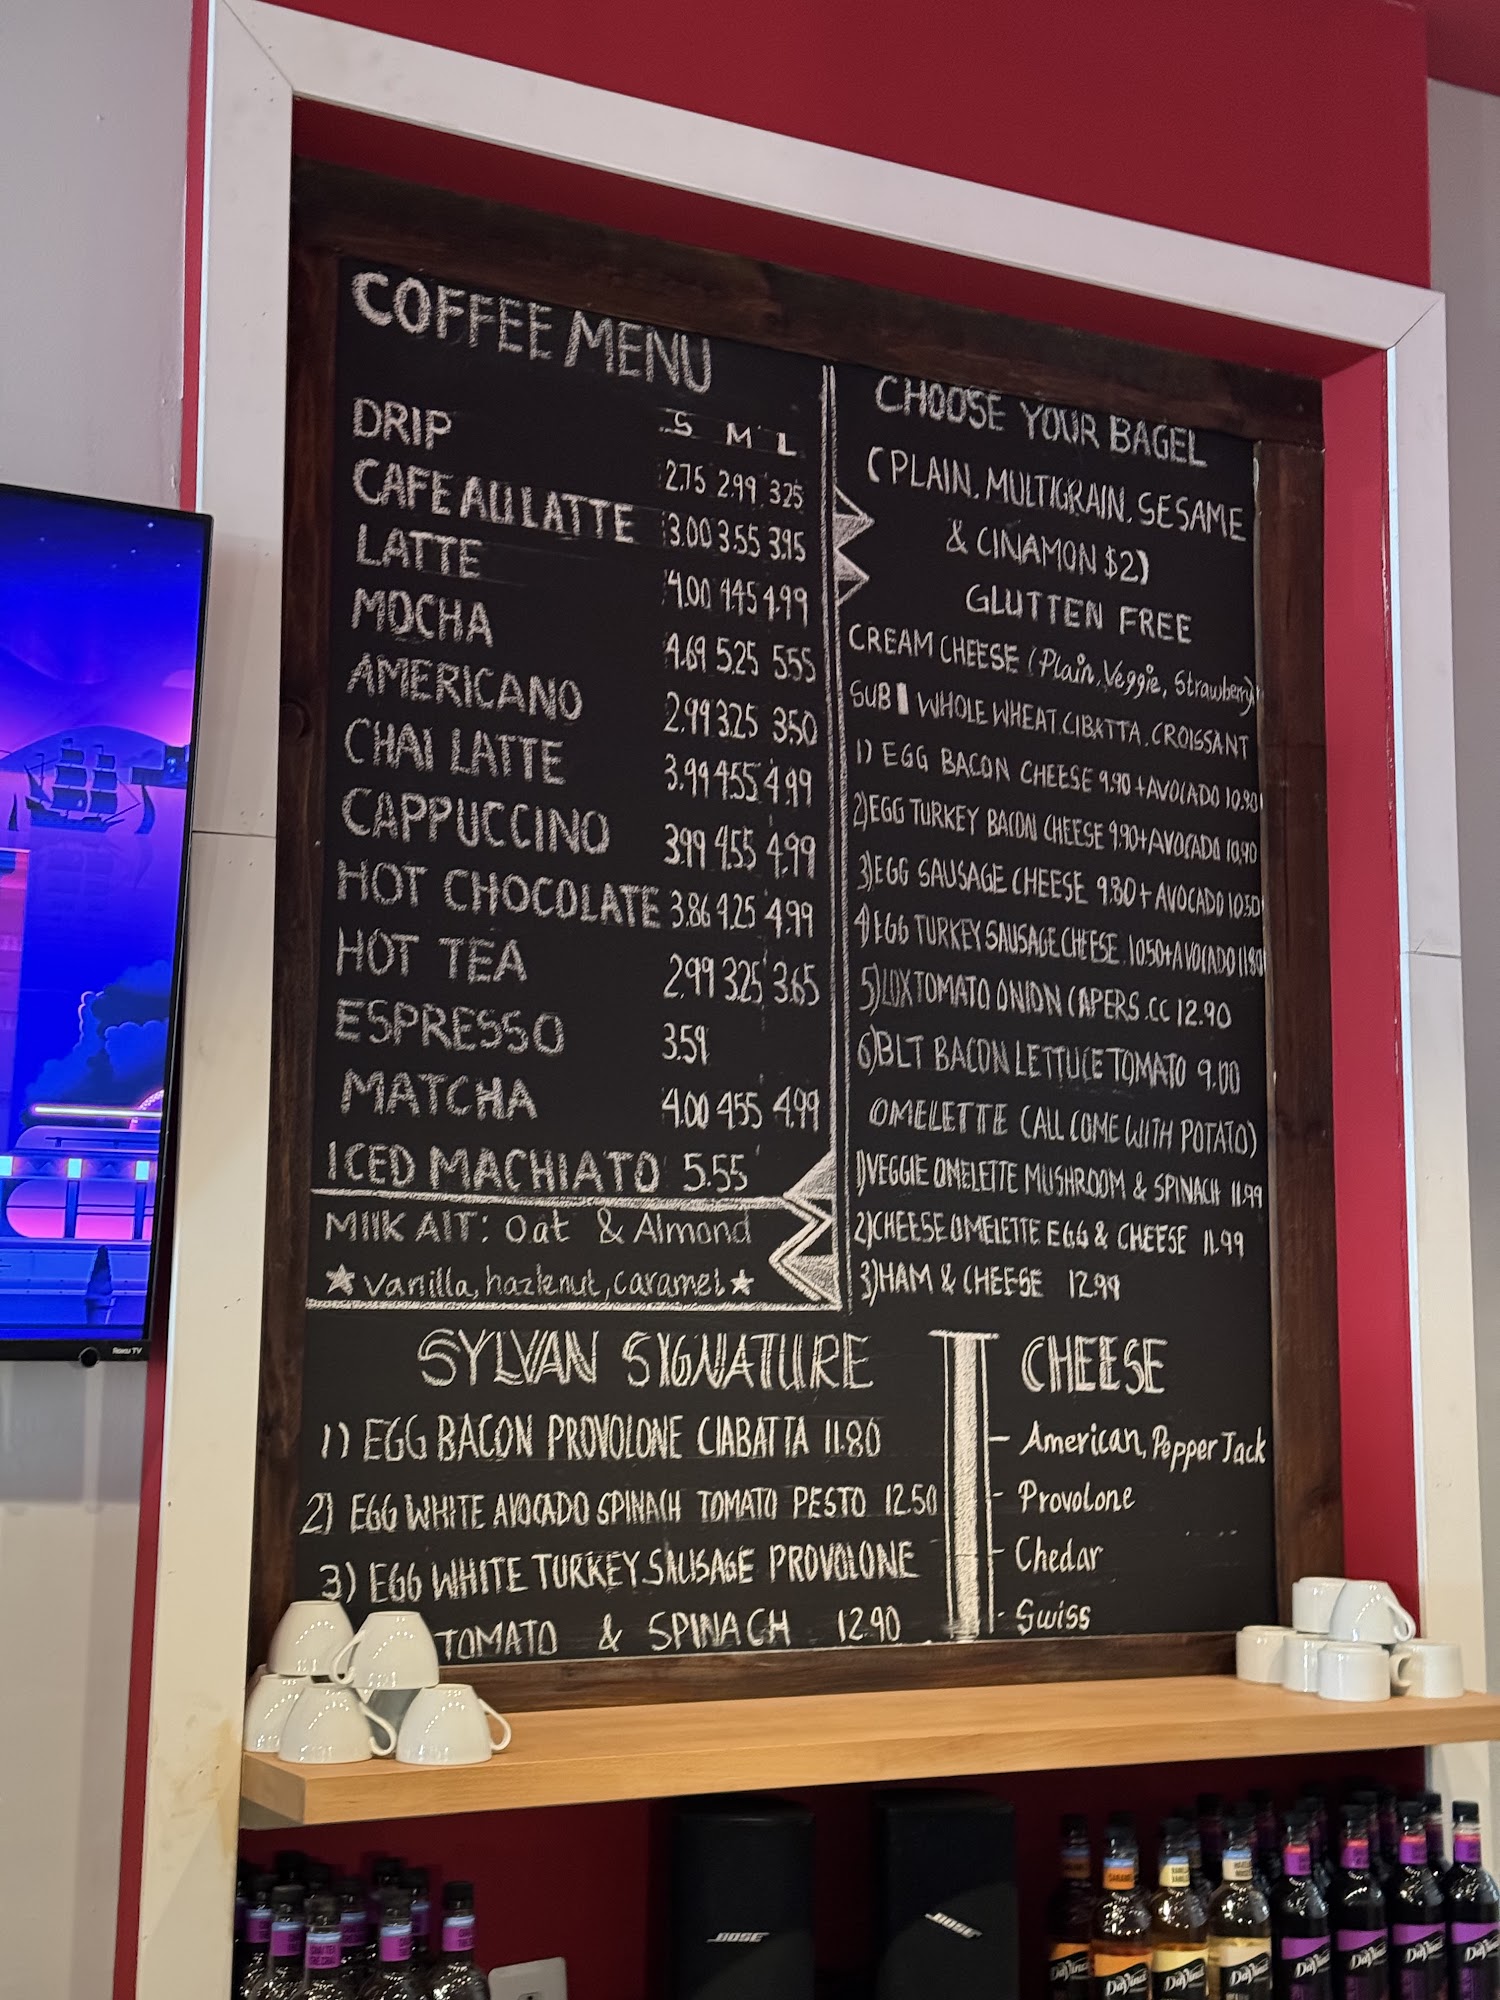 COFFEE MENU
S M L
DRIP 2.75 2.99 3.25
CAFE AU LATTE 3.00 3.55 3.95
LATTE 4.00 4.45 4.99
MOCHA 4.69 5.25 5.55
AMERICANO 2.99 3.25 3.50
CHAI LATTE 3.99 4.55 4.99
CAPPUCCINO 3.99 4.55 4.99
HOT CHOCOLATE 3.86 4.25 4.99
HOT TEA 2.99 3.25 3.65
ESPRESSO 3.59
MATCHA 4.00 4.55 4.99
ICED MACHIATO 5.55
MIlK AlT: Oat & Almond
vanilla, hazlenut, caramel
CHOOSE YOUR BAGEL
(PLAIN. MULTIGRAIN. SESAME
& CINAMON $2)
GLUTTEN FREE
CREAM CHEESE (Plain, Veggie, Strawberry)
SUB WHOLE WHEAT. CIBATTA. CROISSANT
1) EGG BACON CHEESE 9.90 + AVOCADO 10.90
2) EGG TURKEY BACON CHEESE 9.90 + AVOCADO 10.90
3) EGG SAUSAGE CHEESE 9.80 + AVOCADO 10.50
4) EGG TURKEY SAUSAGE CHEESE. 10.50 + AVOCADO 11.80
5) LOX TOMATO ONION CAPERS. CC 12.90
6) BLT BACON LETTUCE TOMATO 9.00
OMELETTE (ALL COME WITH POTATO)
1) VEGGIE OMELETTE MUSHROOM & SPINACH 11.99
2) CHEESE OMELETTE EGG & CHEESE 11.99
3) HAM & CHEESE 12.99
SYLVAN SIGNATURE
1) EGG BACON PROVOLONE CIABATTA 11.80
2) EGG WHITE AVOCADO SPINACH TOMATO PESTO 12.50
3) EGG WHITE TURKEY. SAUSAGE PROVOLONE
TOMATO & SPINACH 12.90
CHEESE
American, Pepper Jack
Provolone
Chedar
Swiss
Roku TV
BOSE
BOSE
DaVinci
DaVinci
DaVinci
DaVinci
DaVinci
DaVinci
DaVinci
DaVinci